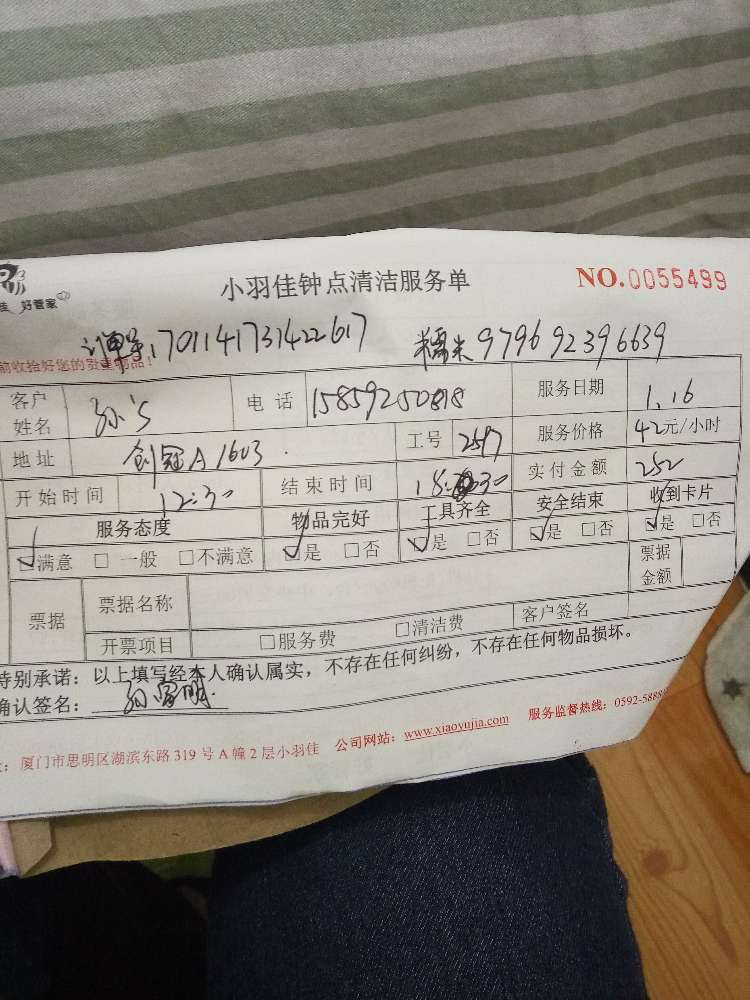 小羽佳钟点清洁服务单 NO.0055499
好管家
订单号:17011417311422617 糯米 979692396639
前收拾好您的贵重物品!
客户姓名 孙 电话 15859250818 服务日期 1.16
地址 创冠A1603. 工号 2597 服务价格 42元/小时
开始时间 12:30 结束时间 18:30 实付金额 252
服务态度 物品完好 工具齐全 安全结束 收到卡片
☑满意 □一般 □不满意 ☑是 □否 ☑是 □否 ☑是 □否 ☑是 □否
票据 票据名称 票据金额
开票项目 □服务费 □清洁费 客户签名
特别承诺:以上填写经本人确认属实,不存在任何纠纷,不存在任何物品损坏。
确认签名:
厦门市思明区湖滨东路319号A幢2层小羽佳 公司网站:www.xiaoyujia.com 服务监督热线:0592-5888